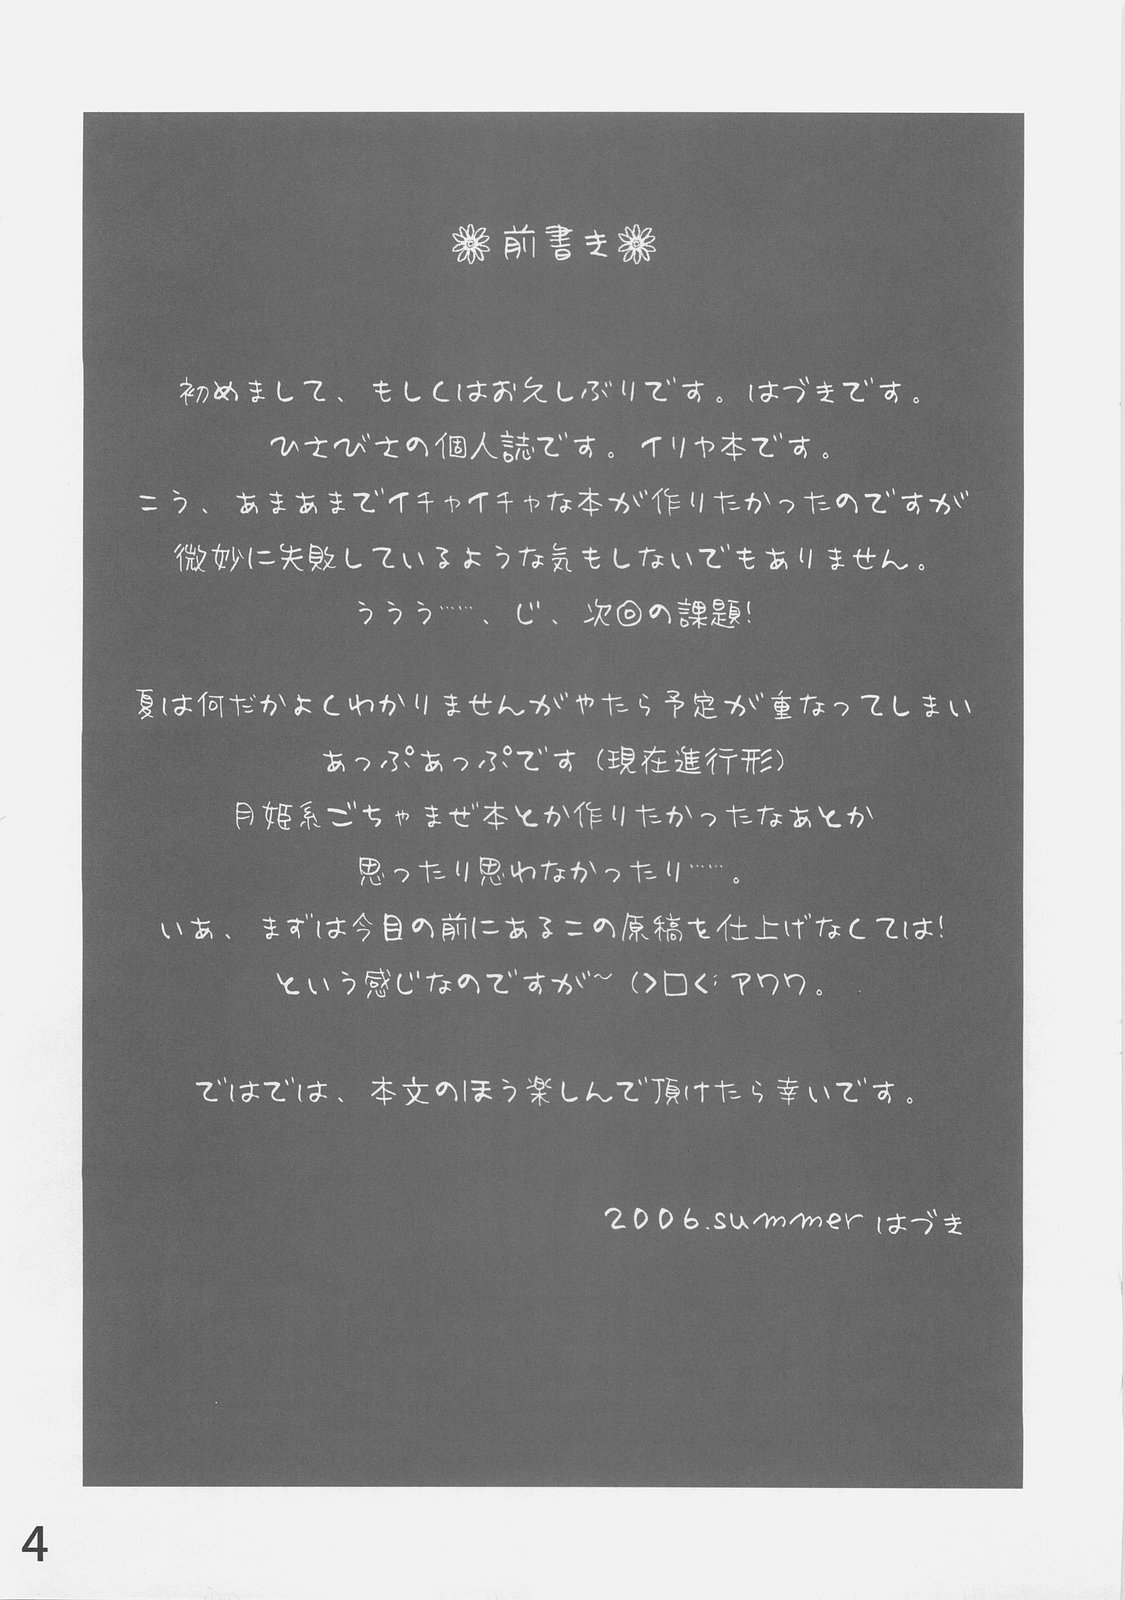 前書き
初めまして、もしくはお久しぶりです。はづきです。
ひさびさの個人誌です。イリヤ本です。
こう、あまあまでイチャイチャな本が作りたかったのですが
微妙に失敗しているような気もしないでもありません。
ううう……、じ、次回の課題!
夏は何だかよくわかりませんがやたら予定が重なってしまい
あっぷあっぷです(現在進行形)
月姫系ごちゃまぜ本とか作りたかったなぁとか
思ったり思わなかったり……。
いあ、まずは今目の前にあるこの原稿を仕上げなくては!
という感じなのですが〜 (>□<; アワワ。
ではでは、本文のほう楽しんで頂けたら幸いです。
2006.summer はづき
4